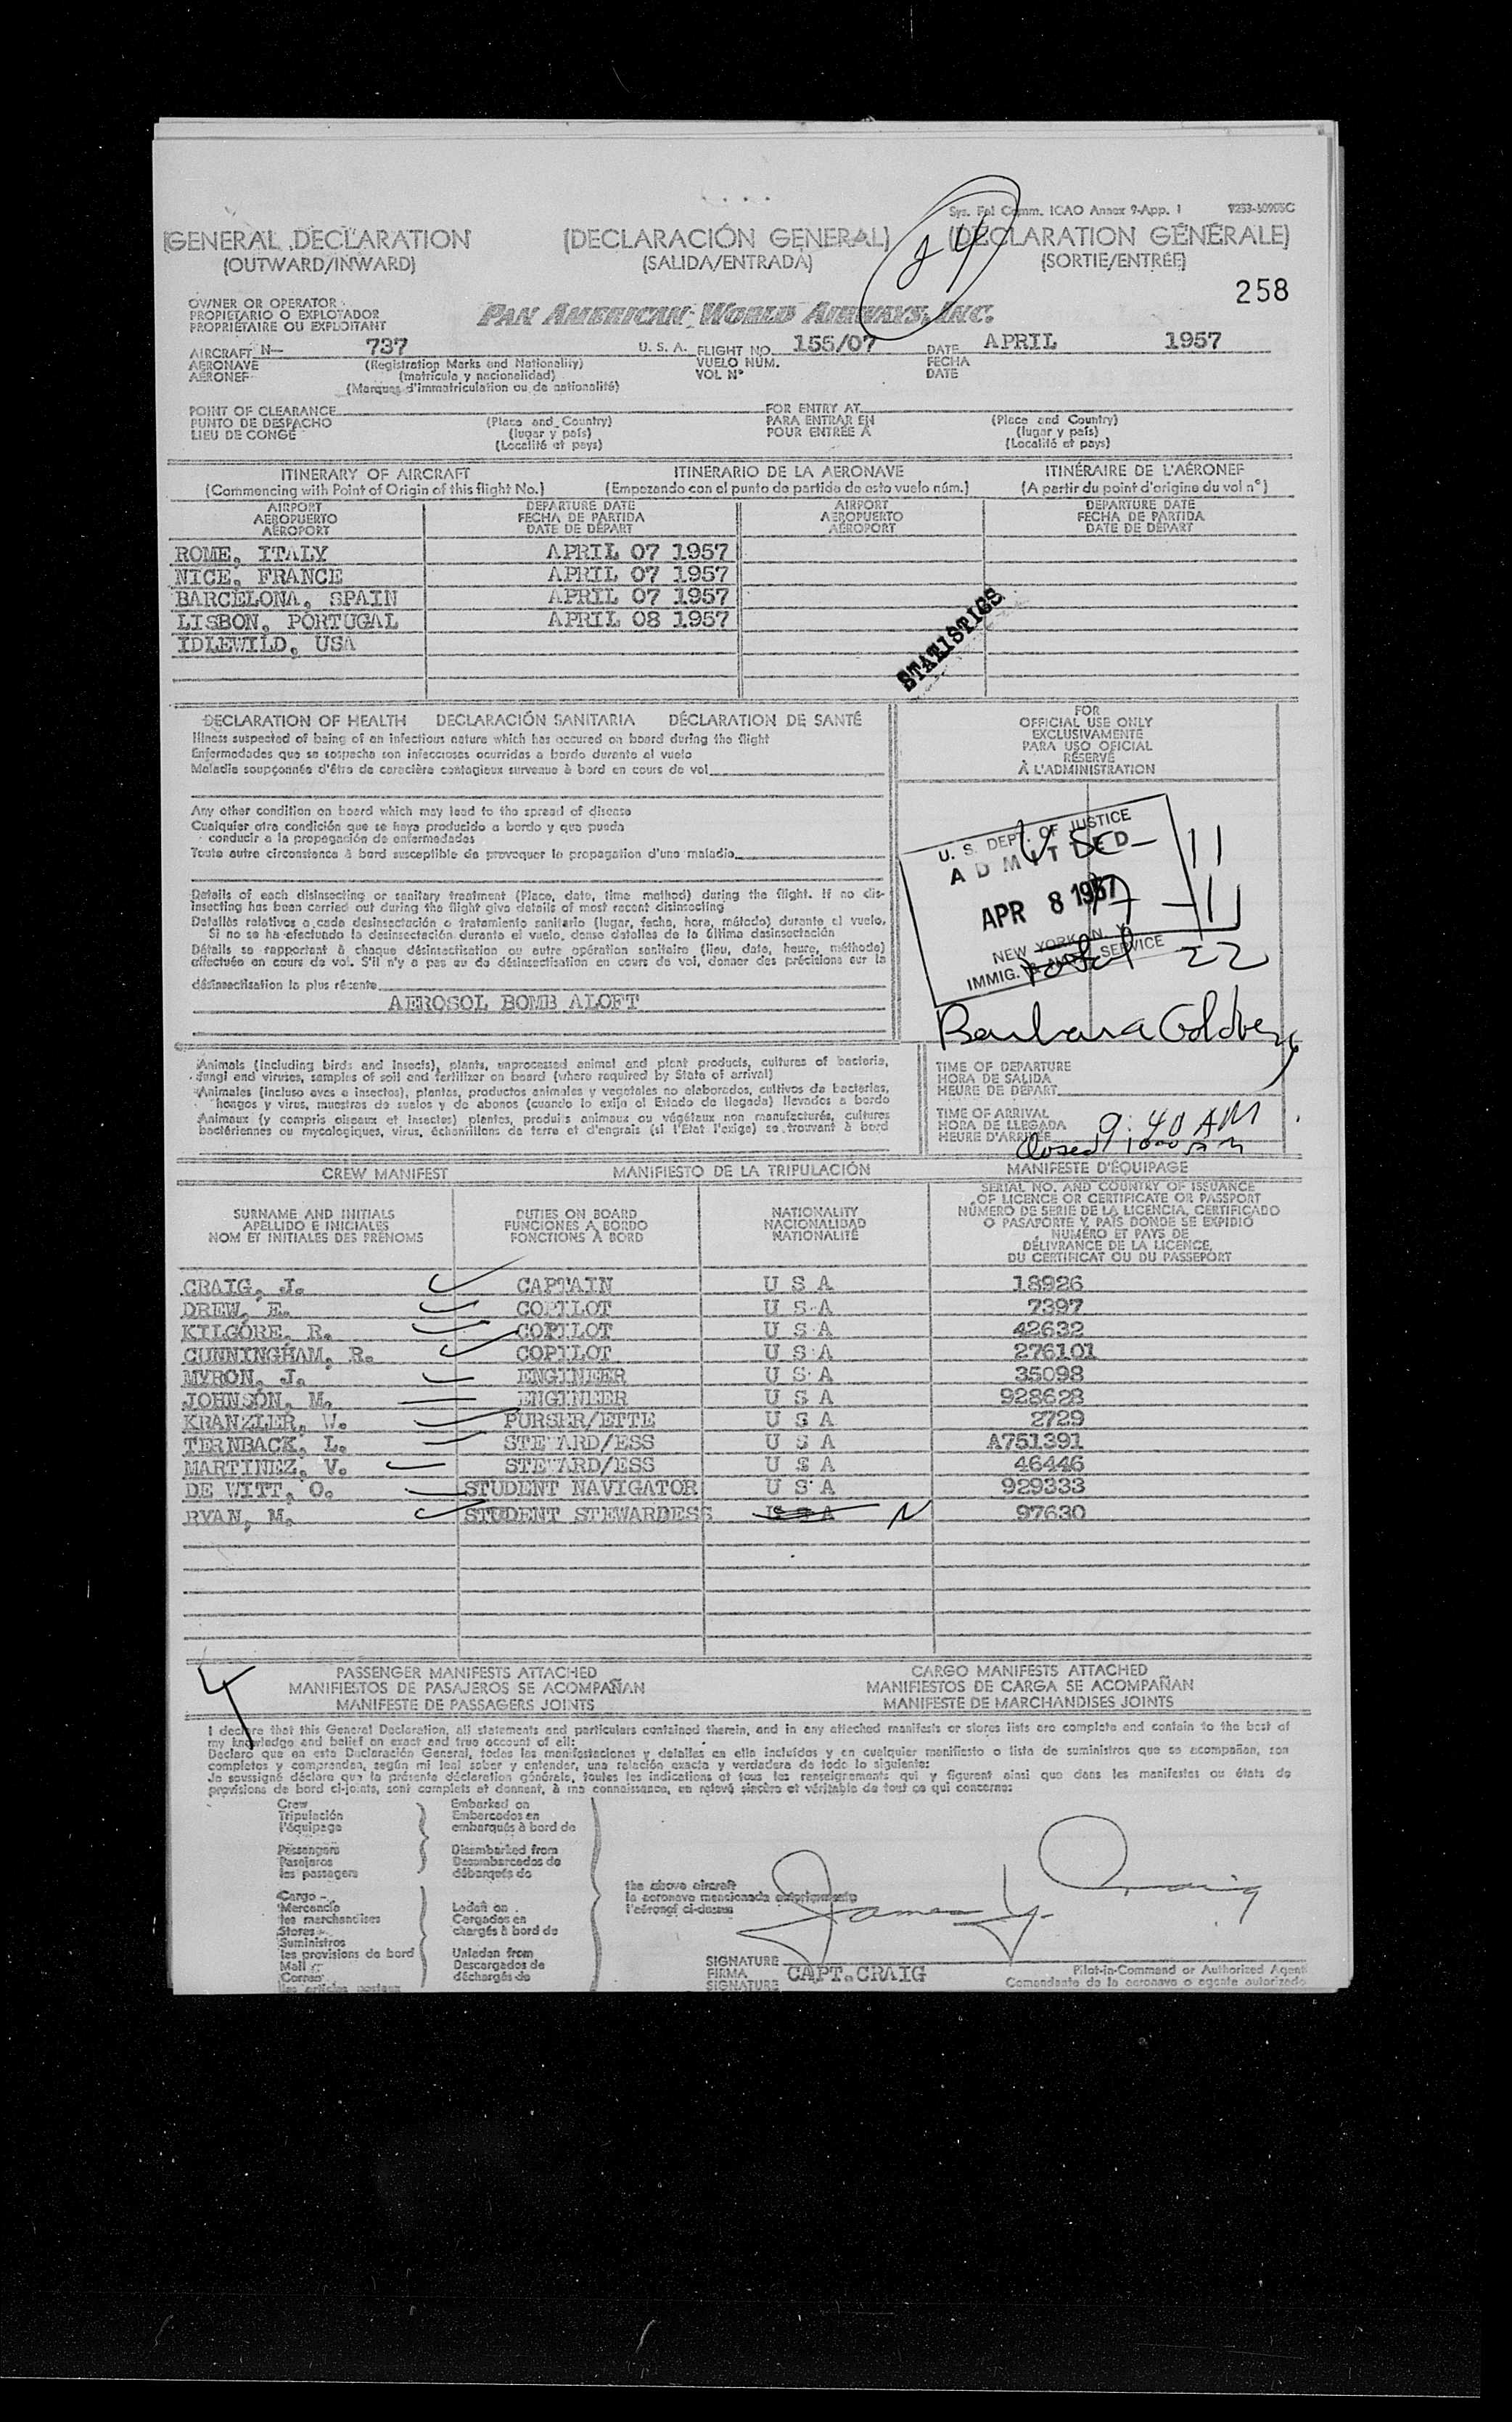 Sys. Fol Comm. ICAO Annex 9-App. 1
24
GENERAL DECLARATION (DECLARACIÓN GENERAL) (DÉCLARATION GÉNÉRALE)
(OUTWARD/INWARD) (SALIDA/ENTRADA) (SORTIE/ENTRÉE)
258
OWNER OR OPERATOR
PROPIETARIO O EXPLOTADOR
PROPRIÉTAIRE OU EXPLOITANT
PAN AMERICAN WORLD AIRWAYS, INC.
AIRCRAFT N— 737 U. S. A. FLIGHT NO. 155/07 DATE APRIL 1957
AERONAVE (Registration Marks and Nationality) VUELO NÚM. FECHA
AÉRONEF (matrícula y nacionalidad) VOL Nº DATE
(Marques d'immatriculation ou de nationalité)
POINT OF CLEARANCE FOR ENTRY AT
PUNTO DE DESPACHO (Place and Country) PARA ENTRAR EN (Place and Country)
LIEU DE CONGÉ (lugar y país) POUR ENTRÉE À (lugar y país)
(Localité et pays) (Localité et pays)
ITINERARY OF AIRCRAFT ITINERARIO DE LA AERONAVE ITINÉRAIRE DE L'AÉRONEF
(Commencing with Point of Origin of this flight No.) (Empezando con el punto de partida de esto vuelo núm.) (A partir du point d'origine du vol nº)
AIRPORT DEPARTURE DATE AIRPORT DEPARTURE DATE
AEROPUERTO FECHA DE PARTIDA AEROPUERTO FECHA DE PARTIDA
AÉROPORT DATE DE DÉPART AÉROPORT DATE DE DÉPART
ROME, ITALY APRIL 07 1957
NICE, FRANCE APRIL 07 1957
BARCELONA, SPAIN APRIL 07 1957
LISBON, PORTUGAL APRIL 08 1957
IDLEWILD, USA
STATISTICS
DECLARATION OF HEALTH DECLARACIÓN SANITARIA DÉCLARATION DE SANTÉ
Illness suspected of being of an infectious nature which has occured on board during the flight
Enfermedades que se sospecha son infecciosas ocurridas a bordo durante el vuelo
Maladie soupçonnée d'être de caractère contagieux survenue à bord en cours de vol
Any other condition on board which may lead to the spread of disease
Cualquier otra condición que se haya producido a bordo y que pueda
conducir a la propagación de enfermedades
Toute autre circonstance à bord susceptible de provoquer la propagation d'une maladie
Details of each disinsecting or sanitary treatment (Place, date, time method) during the flight. If no dis-
insecting has been carried out during the flight give details of most recent disinsecting
Detalles relativos a cada desinsectación o tratamiento sanitario (lugar, fecha, hora, método) durante el vuelo.
Si no se ha efectuado la desinsectación durante el vuelo, dense detalles de la última desinsectación
Détails se rapportant à chaque désinsectisation ou autre opération sanitaire (lieu, date, heure, méthode)
effectuée en cours de vol. S'il n'y a pas eu de désinsectisation en cours de vol, donner des précisions sur la
désinsectisation la plus récente
AEROSOL BOMB ALOFT
FOR
OFFICIAL USE ONLY
EXCLUSIVAMENTE
PARA USO OFICIAL
RÉSERVÉ
À L'ADMINISTRATION
U. S. DEPT. OF JUSTICE
ADMITTED
APR 8 1957
NEW YORK, N. Y.
IMMIG. & NATZ. SERVICE
USC - 11
A - 11
Total 22
Barbara Goldberg
Animals (including birds and insects), plants, unprocessed animal and plant products, cultures of bacteria,
fungi and viruses, samples of soil and fertilizer on board (where required by State of arrival)
Animales (incluso aves e insectos), plantas, productos animales y vegetales no elaborados, cultivos de bacterias,
hongos y virus, muestras de suelos y de abonos (cuando lo exija el Estado de llegada) llevados a bordo
Animaux (y compris oiseaux et insectes) plantes, produits animaux ou végétaux non manufacturés, cultures
bactériennes ou mycologiques, virus, échantillons de terre et d'engrais (si l'Etat l'exige) se trouvant à bord
TIME OF DEPARTURE
HORA DE SALIDA
HEURE DE DÉPART
TIME OF ARRIVAL
HORA DE LLEGADA
HEURE D'ARRIVÉE
9:40 AM
Closed
CREW MANIFEST MANIFIESTO DE LA TRIPULACIÓN MANIFESTE D'ÉQUIPAGE
SURNAME AND INITIALS
APELLIDO E INICIALES
NOM ET INITIALES DES PRÉNOMS
DUTIES ON BOARD
FUNCIONES A BORDO
FONCTIONS À BORD
NATIONALITY
NACIONALIDAD
NATIONALITÉ
SERIAL NO. AND COUNTRY OF ISSUANCE
OF LICENCE OR CERTIFICATE OR PASSPORT
NÚMERO DE SERIE DE LA LICENCIA, CERTIFICADO
O PASAPORTE Y PAÍS DONDE SE EXPIDIÓ
NUMÉRO ET PAYS DE
DÉLIVRANCE DE LA LICENCE,
DU CERTIFICAT OU DU PASSEPORT
CRAIG, J. CAPTAIN U S A 18926
DREW, E. COPILOT U S A 7397
KILGORE, R. COPILOT U S A 42632
CUNNINGHAM, R. COPILOT U S A 276101
MYRON, J. ENGINEER U S A 35098
JOHNSON, M. ENGINEER U S A 928628
KRANZLER, W. PURSER/ETTE U S A 2729
TERNBACK, L. STEWARD/ESS U S A A751391
MARTINEZ, V. STEWARD/ESS U S A 46446
DE WITT, O. STUDENT NAVIGATOR U S A 929333
RYAN, M. STUDENT STEWARDESS U S A N 97630
4
PASSENGER MANIFESTS ATTACHED CARGO MANIFESTS ATTACHED
MANIFIESTOS DE PASAJEROS SE ACOMPAÑAN MANIFIESTOS DE CARGA SE ACOMPAÑAN
MANIFESTE DE PASSAGERS JOINTS MANIFESTE DE MARCHANDISES JOINTS
I declare that this General Declaration, all statements and particulars contained therein, and in any attached manifests or stores lists are complete and contain to the best of
my knowledge and belief an exact and true account of all:
Declaro que en esta Declaración General, todas las manifestaciones y detalles en ella incluídos y en cualquier manifiesto o lista de suministros que se acompañan, son
completos y comprenden, según mi leal saber y entender, una relación exacta y verdadera de todo lo siguiente:
Je soussigné déclare que la présente déclaration générale, toutes les indications et tous les renseignements qui y figurent ainsi que dans les manifestes ou états de
provisions de bord ci-joints, sont complets et donnent, à ma connaissance, un relevé sincère et véritable de tout ce qui concerne:
Crew
Tripulación
l'équipage
Passengers
Pasajeros
les passagers
Embarked on
Embarcados en
embarqués à bord de
Disembarked from
Desembarcados de
débarqués de
Cargo
Mercancía
les marchandises
Stores
Suministros
les provisions de bord
Mail
Correo
les articles postaux
Laden on
Cargados en
chargés à bord de
Unladen from
Descargados de
déchargés de
the above aircraft
la aeronave mencionada anteriormente
l'aéronef ci-dessus
James Y. Craig
SIGNATURE
FIRMA CAPT. CRAIG
SIGNATURE
Pilot-in-Command or Authorized Agent
Comandante de la aeronave o agente autorizado